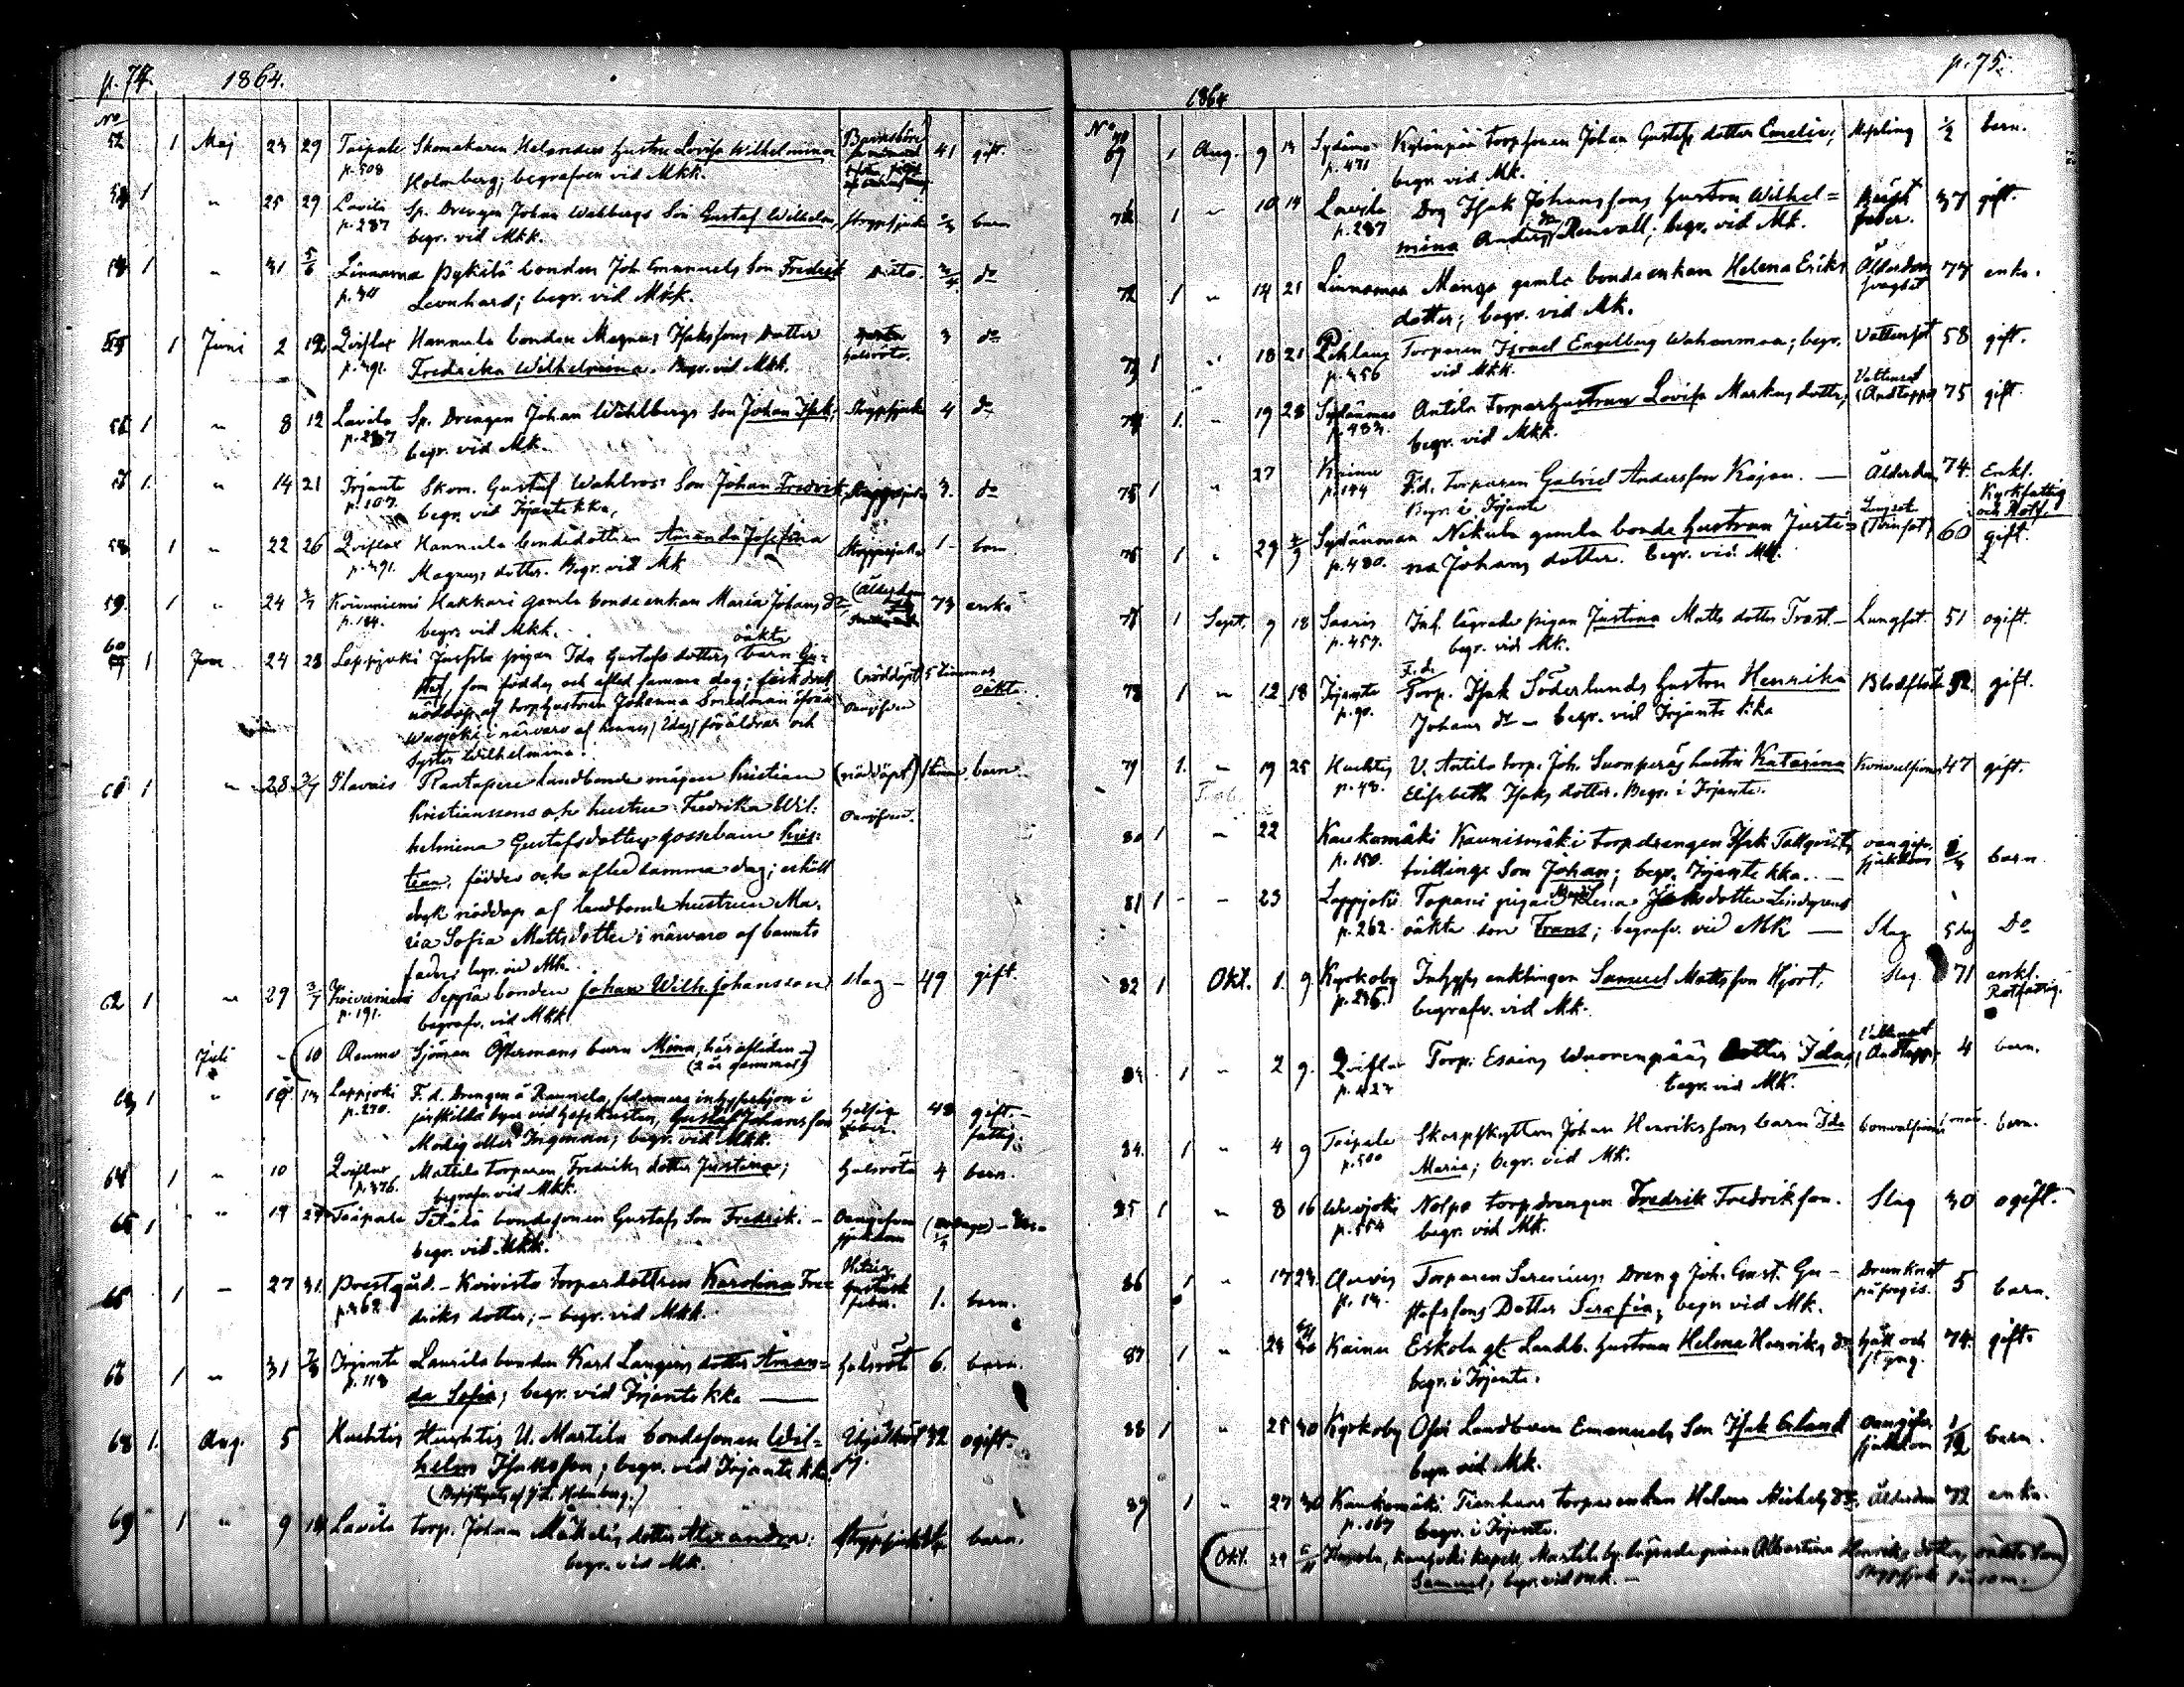 p. 74. 1864.
No
52 1 Maj 23 29 Taipale Skomakaren Helanders hustru Lovisa Wilhelmina 41 gift.
p. 508 Holmberg; begrafven vid Mkk.
1 " 25 29 Lavila Sp. Drengen Johan Wahlbergs Son Gustaf Wilhelm, Strypsjuka barn
p. 287 begr. vid Mkk.
1 " 31 5/6 Linnamaa Pykälä bonden Joh. Emanuels Son Fredrik Dito. 3/4 do
Leonhard; begr. vid Mkk.
55 1 Juni 2 12 Qviflax Hannula bonden Magnus Isakssons Dotter halsröta. 3 do
p. 391. Fredrika Wilhelmina. Begr. vid Mkk.
56 1 " 8 12 Lavila Sp. Drengen Johan Wahlbergs Son Johan Isak, Strypsjuka 4 do
p. 287 begr. vid Mk.
57 1. " 14 21 Irjante Skom. Gustaf Wahlros' Son Johan Fredrik, Strypsjuka 3. do
p. 107. begr. vid Irjante kka,
58 1 " 22 26 Qviflax Hannula bondedottren Amanda Josefina Strypsjuka 1 barn
p. 391. Magnus dotter. Begr. vid Mk
59. 1 " 24 3/7 Koivuniemi Hakkari gamla bondeenkan Maria Johans dr, (Ålderdom 73 enka
p. 184. begr. vid Mkk.
60 1 Juni 24 28 Lappijoki Jussila pigan Ida Gustafs dotters oäkta barn Gu=
staf, som föddes och afled samma dag; fick dock (nöddöpt) 5 timmas oäkta
nöddop af torphustrun Johanna Smedman ifrån oangifven
Wuojoki i närvaro af hennes föräldrar och
syster Wilhelmina.
61 1 " 28 3/7 Ilavais Rantapere landbonde mågen Kristian (nöddöpt) 1 timma barn.
Kristianssons och hustru Fredrika Wil- oangifven.
helmina Gustafsdotters gossebarn Kris-
tian, föddes och afled samma dag; erhöll
dock nöddop af landbonde hustrun Ma-
ria Sofia Mattsdotter i närvaro af barnets
fader; begr. vid Mk.
62 1 " 29 3/7 Koivuniemi Seppä bonden Johan Wilh. Johansson slag - 49 gift.
p. 191. begrafv. vid Mkk.
Juli - (10 Raumo Sjöman Östermans barn Mina, här afliden -)
(2 år gammal)
63 1 " 10 17 Lappijoki F. d. Drengen å Raumola, sedermera inhyseshjon i
p. 270. särskilda byar vid hafskusten, Gustaf Johansson 48 gift.- fattig.
Modig eller Ingman; begr. vid Mkk.
64 1 " 10 Qviflax Mattila torparen Fredriks dotter Justina; halsröta 4 barn.
p. 376. begrafv. vid Mkk.
65 1 " 19 24 Taipale Sitälä bondesonen Gustafs Son Fredrik. - Oangifven sjukdom
begr. vid Mkk.
66 1 - 27 31. Prestgård. - Koivisto torpardottren Karolina Fre= 1. barn.
p. 362. driks dotter; - begr. vid Mkk.
67 1 " 31 7/8 Irjante Laurila bonden Karl Langens dotter Aman= halsröta 6. barn.
p. 118 da Sofia; begr. vid Irjante kka
68 1. Aug. 5 Huchtis Huchtis U. Martila bondesonen Wil= 32 ogift.
helm Isaksson; begr. vid Irjante kka
69 1 " 9 14 Lavila torp. Johan Mäkeläs dotter Alexandra: Strypsjuka barn.
begr. vid Mk.
p. 75.
1864
No
69 1 Aug. 9 13 Sydänmaa Kylänpää torpsonen Johan Gustafs dotter Emelie; Messling 1/2 barn.
p. 471 begr. vid Mk.
1 " 10 14 Lavila Dng Isak Johanssons hustru Wilhel= 37 gift.
p. 287 mina Anders dr Renvall; begr. vid Mk.
72 1 " 14 21 Linnamaa Mangs gamla bondeenkan Helena Eriks Ålderdoms svaghet 77 enka.
dotter; begr. vid Mk.
73 1 " 18 21 Pihlaus Torparen Israel Engelberg Wahanmaa; begr. Vattensot 58 gift.
p. 456 vid Mkk.
74 1. " 19 28 Sydänmaa Antila torparhustrun Lovisa Markus dotter, Vattensot (Andtäppa) 75 gift.
p. 483. begr. vid Mkk.
75 1 " 27 Kainu F.d. torparen Gabriel Andersson Kajan. - Ålderdom 74. Enkl.
p. 144 Begr. i Irjante Kyrkfattig
76 1 " 29 4/9 Sydänmaa Nikula gamla bonde hustrun Justi= Lungsot (Tvinsot) 60 gift.
p. 480. na Johans dotter. begr. vid Mk.
77 1 Sept. 9 18 Saaris Inh. lägrade pigan Justina Matts dotter Trast. - Lungsot. 51 ogift.
p. 457. begr. vid Mk.
78 1 " 12 18 Irjante F.d. Torp. Isak Söderlunds hustru Henrika Blodflöde 52. gift.
p. 90. Johans dr - begr. vid Irjante kka
79 1. " 19 25 Huchtis U. Antila torp. Joh. Suonperäs hustru Katarina Konvulsioner 47 gift.
p. 48. Elisabeth Isaks dotter. Begr. i Irjante.
80 1 " 22 Kaukomäki Kaunismäki torpdrengen Isak Tallqvists oangifv. sjukdom barn
p. 150. tvillinge Son Johan; begr. Irjante kka. -
81 1 - - 23 Lappijoki Topani pigan Maria Lena Isaksdotter Lindgrens
p. 262. oäkta son Frans; begrafv. vid Mk - Slag 5 dag Do
82 1 Okt. 1. 9. Kyrkoby Inhyses enklingen Samuel Mattsson Hjort, Slag 71 enkl. Rotfattig.
begrafv. vid Mk.
83. 1 " 2 9. Qviflax Torp. Esaias Wuorenpääs dotter Ida, (Andtäppa) 4 barn.
p. 427 begr. vid Mk.
84. 1 " 4 9 Taipale Skarpskytten Johan Henrikssons barn Ida konvulsioner 1 mån. barn.
p. 500 Maria; begr. vid Mk.
85 1 " 8 16 Wuojoki Nolpo torpdrengen Fredrik Fredriksson. Slag 30 ogift.
p. 554 begr. vid Mk.
86 1 " 17 23. Auvis Torparen Serenius' Dreng Joh. Gust. Gu- Drunknat på svag is. 5 barn.
p. 14. stafssons Dotter Serafia; begr. vid Mk.
87 1 " 23 30 Kainu Eskola gl. Landb. hustrun Helena Henriks dr håll och styng. 74. gift.
begr. i Irjante.
88 1 " 25 30 Kyrkoby Ofvi Landboen Emanuels Son Isak Erland oangifv. sjukdom 1/12 barn.
begr. vid Mk.
89 1 " 27 30 Kaukomäki Tienhaara torparenkan Helena Michels dr. Ålderdom 72 enka.
p. 167 begr. i Irjante.
(Okt. 29 6/11 kapell, Martila by lägrade pigan Albertina Henriks dotters oäkta Son
Samuel, begr. vid Mk. - Strypsjuka